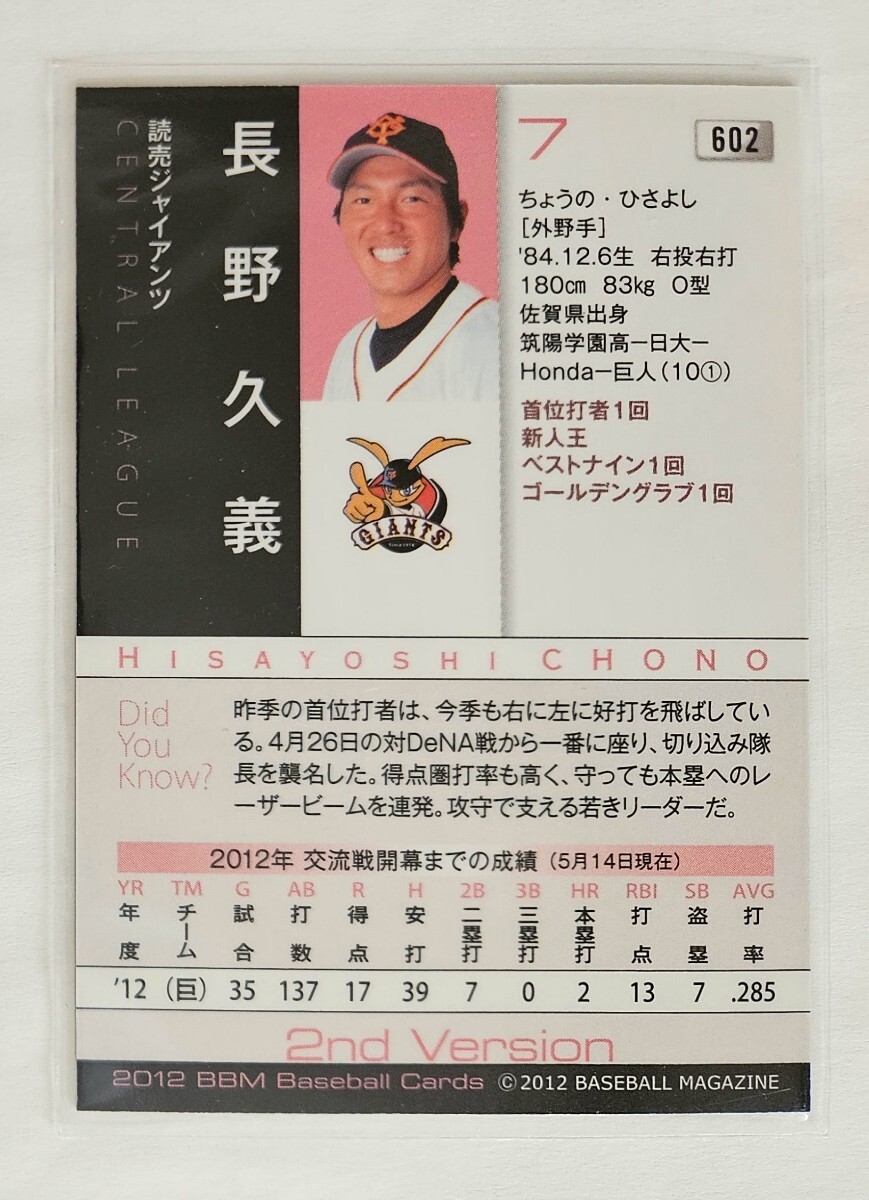 読売ジャイアンツ
CENTRAL LEAGUE
長野久義
7
602
ちょうの・ひさよし
［外野手］
'84.12.6生 右投右打
180㎝ 83kg O型
佐賀県出身
筑陽学園高ー日大ー
Hondaー巨人（10①）
首位打者1回
新人王
ベストナイン1回
ゴールデングラブ1回
GIANTS
Since1934
HISAYOSHI CHONO
Did
You
Know?
昨季の首位打者は、今季も右に左に好打を飛ばしてい
る。4月26日の対DeNA戦から一番に座り、切り込み隊
長を襲名した。得点圏打率も高く、守っても本塁へのレ
ーザービームを連発。攻守で支える若きリーダーだ。
2012年 交流戦開幕までの成績（5月14日現在）
YR TM G AB R H 2B 3B HR RBI SB AVG
年度 チーム 試合 打数 得点 安打 二塁打 三塁打 本塁打 打点 盗塁 打率
'12 （巨） 35 137 17 39 7 0 2 13 7 .285
2nd Version
2012 BBM Baseball Cards ©2012 BASEBALL MAGAZINE